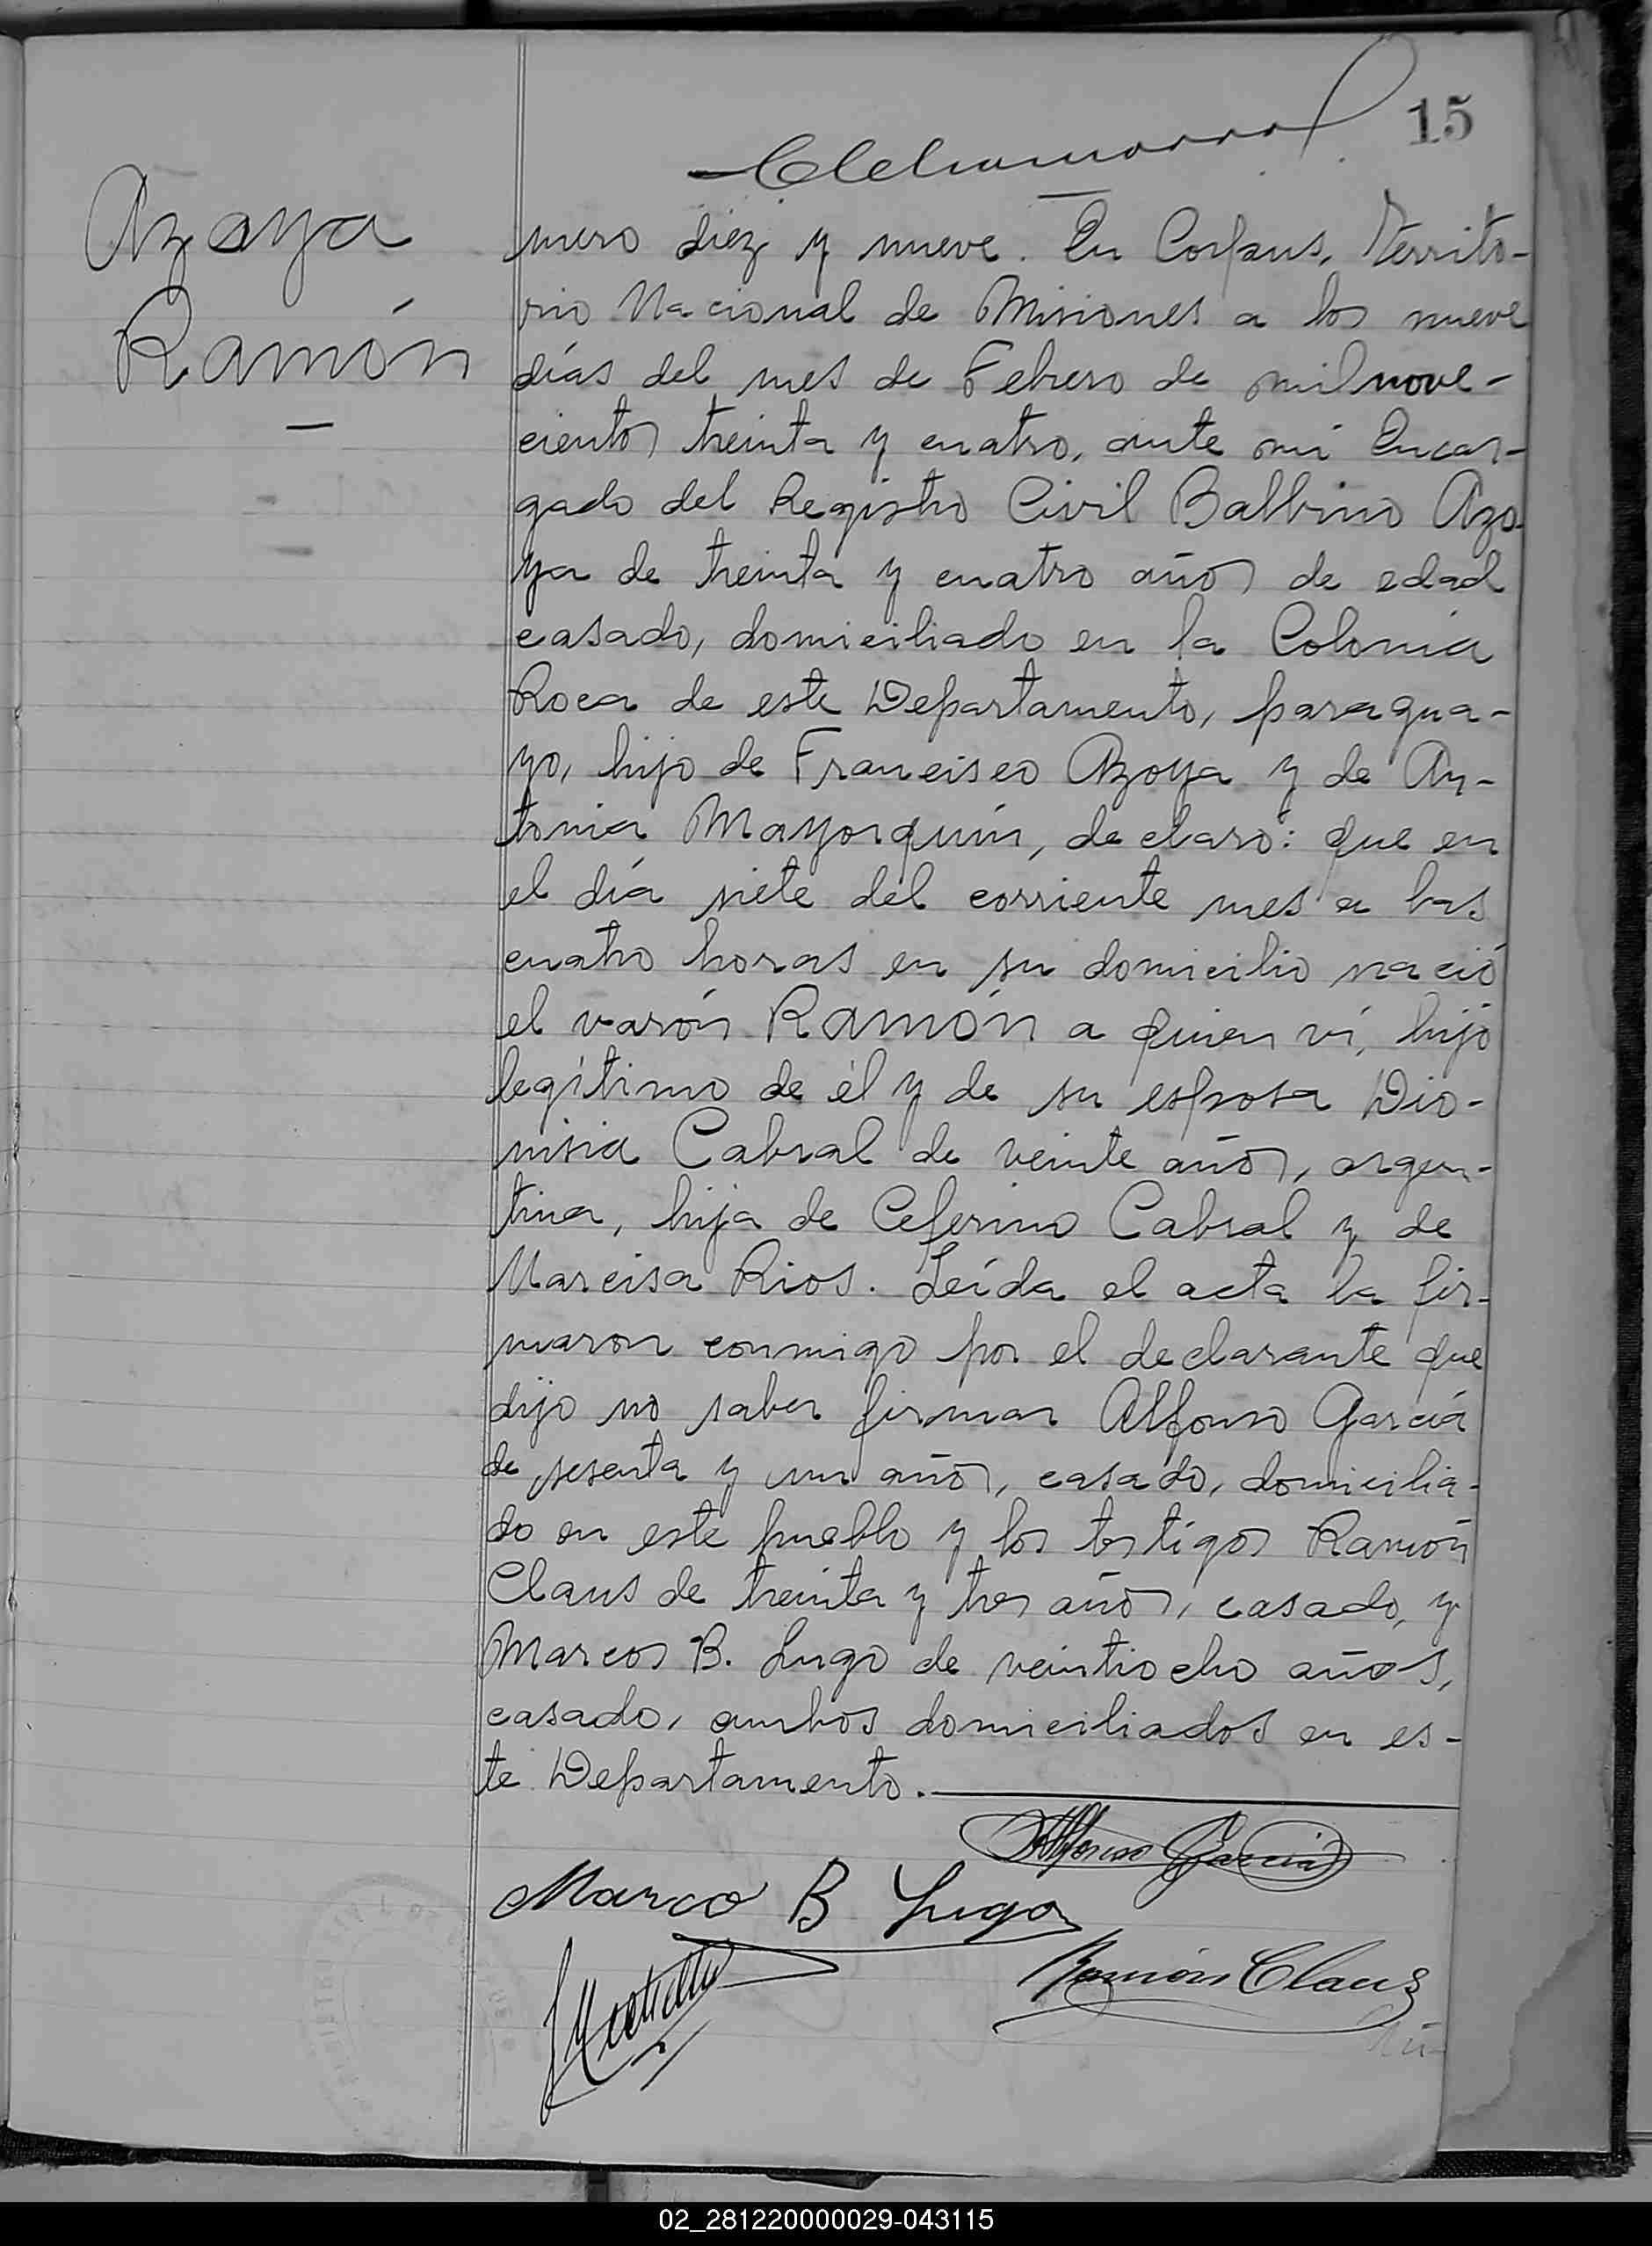 15
Azoya
Ramón
mero diez y nueve. En Corpus, Territo-
rio Nacional de Misiones a los nueve
días del mes de Febrero de mil nove-
cientos treinta y cuatro, ante mí Encar-
gado del Registro Civil Balbino Azo-
ya de treinta y cuatro años de edad
casado, domiciliado en la Colonia
Roca de este Departamento, paragua-
yo, hijo de Francisco Azoya y de An-
tonia Mayorquín, declaró: que en
el día siete del corriente mes a las
cuatro horas en su domicilio nació
el varón Ramón a quien ví, hijo
legítimo de él y de su esposa Dio-
nisia Cabral de veinte años, argen-
tina, hija de Ceferino Cabral y de
Narcisa Rios. Leída el acta la fir-
maron conmigo por el declarante que
dijo no saber firmar Alfonso García
de sesenta y un años, casado, domicilia-
do en este pueblo y los testigos Ramón
Claus de treinta y tres años, casado, y
Marcos B. Lugo de veintiocho años,
casado, ambos domiciliados en es-
te Departamento.
Alfonso García
Marco B Lugo
Ramón Claus
Nú-
02_281220000029-043115